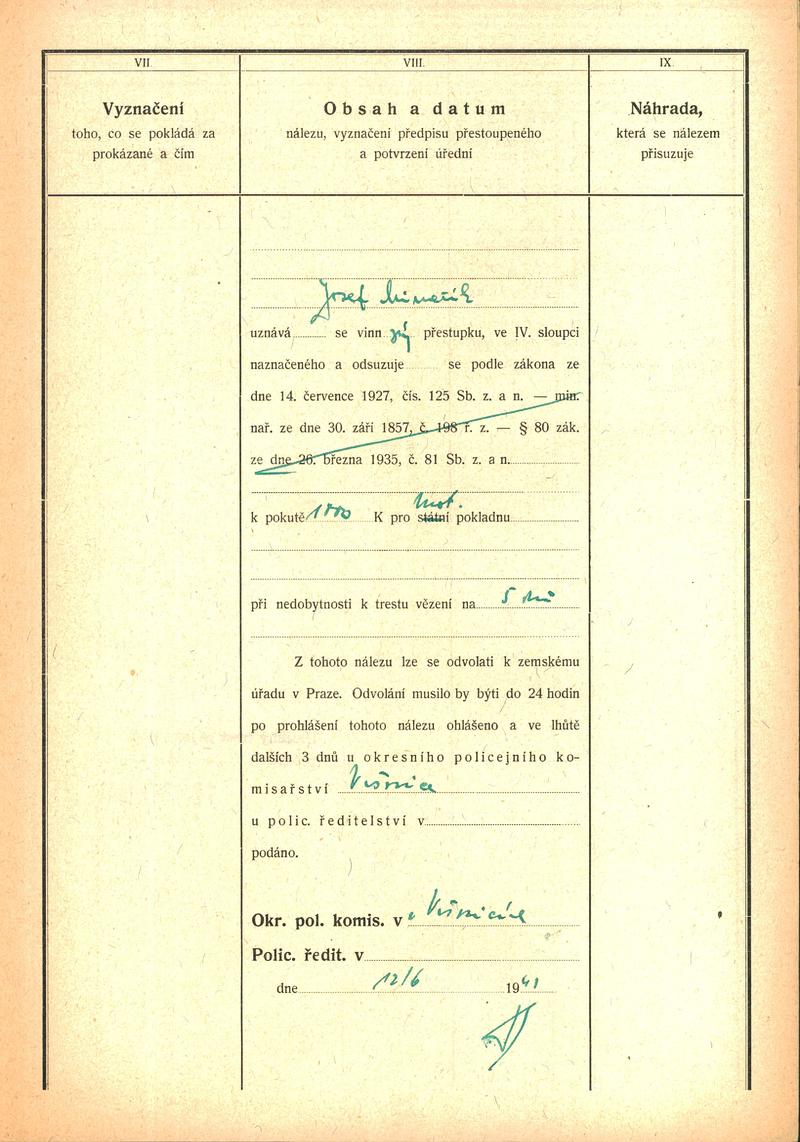 VII.
Vyznačení
toho, co se pokládá za
prokázané a čím
VIII.
Obsah a datum
nálezu, vyznačení předpisu přestoupeného
a potvrzení úřední
IX.
Náhrada,
která se nálezem
přisuzuje
Josef
uznává se vinn ým přestupku, ve IV. sloupci
naznačeného a odsuzuje se podle zákona ze
dne 14. července 1927, čís. 125 Sb. z. a n. — min.
nař. ze dne 30. září 1857, č. 198 ř. z. — § 80 zák.
ze dne 26. března 1935, č. 81 Sb. z. a n.
k pokutě 1000 K pro státní pokladnu
při nedobytnosti k trestu vězení na 5 dnů
Z tohoto nálezu lze se odvolati k zemskému
úřadu v Praze. Odvolání musilo by býti do 24 hodin
po prohlášení tohoto nálezu ohlášeno a ve lhůtě
dalších 3 dnů u okresního policejního ko-
misařství
u polic. ředitelství v
podáno.
Okr. pol. komis. v
Polic. ředit. v
dne 12/6 1941